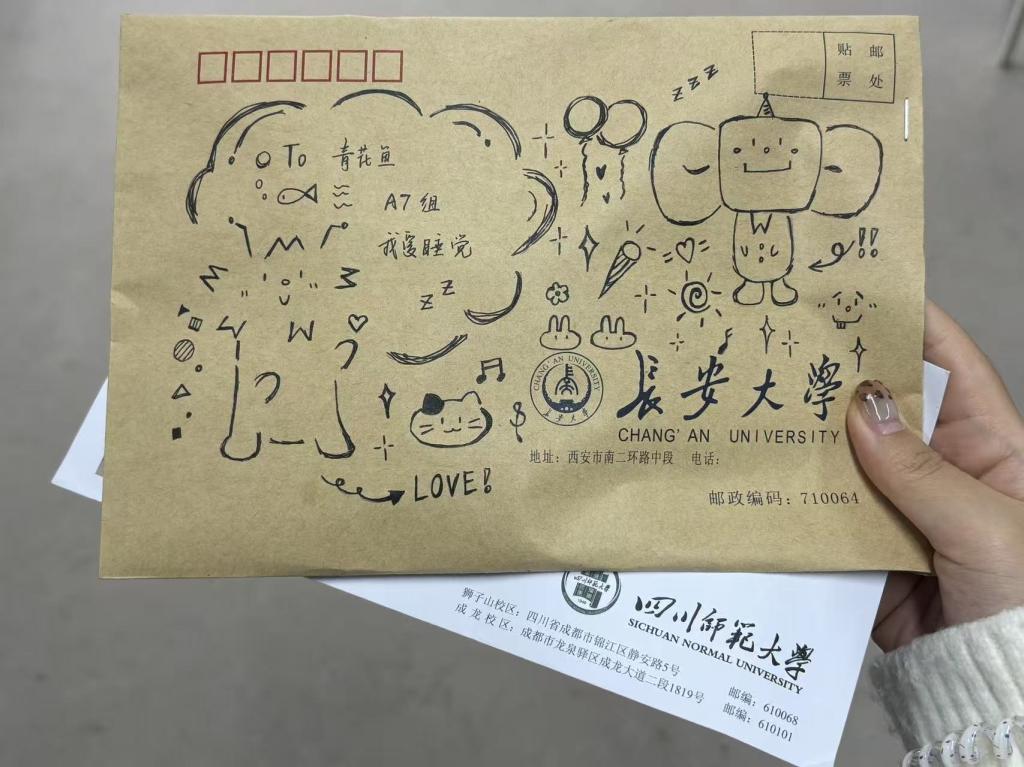 贴 邮
票 处
zzz
To 青花鱼
A7组
我爱睡觉
zz
!!
LOVE!
CHANG'AN UNIVERSITY
长安大学
長安大學
CHANG'AN UNIVERSITY
地址：西安市南二环路中段 电话：
邮政编码：710064
四川师范大学
四川師範大學
SICHUAN NORMAL UNIVERSITY
狮子山校区：四川省成都市锦江区静安路5号 邮编：610068
成龙校区：成都市龙泉驿区成龙大道二段1819号 邮编：610101